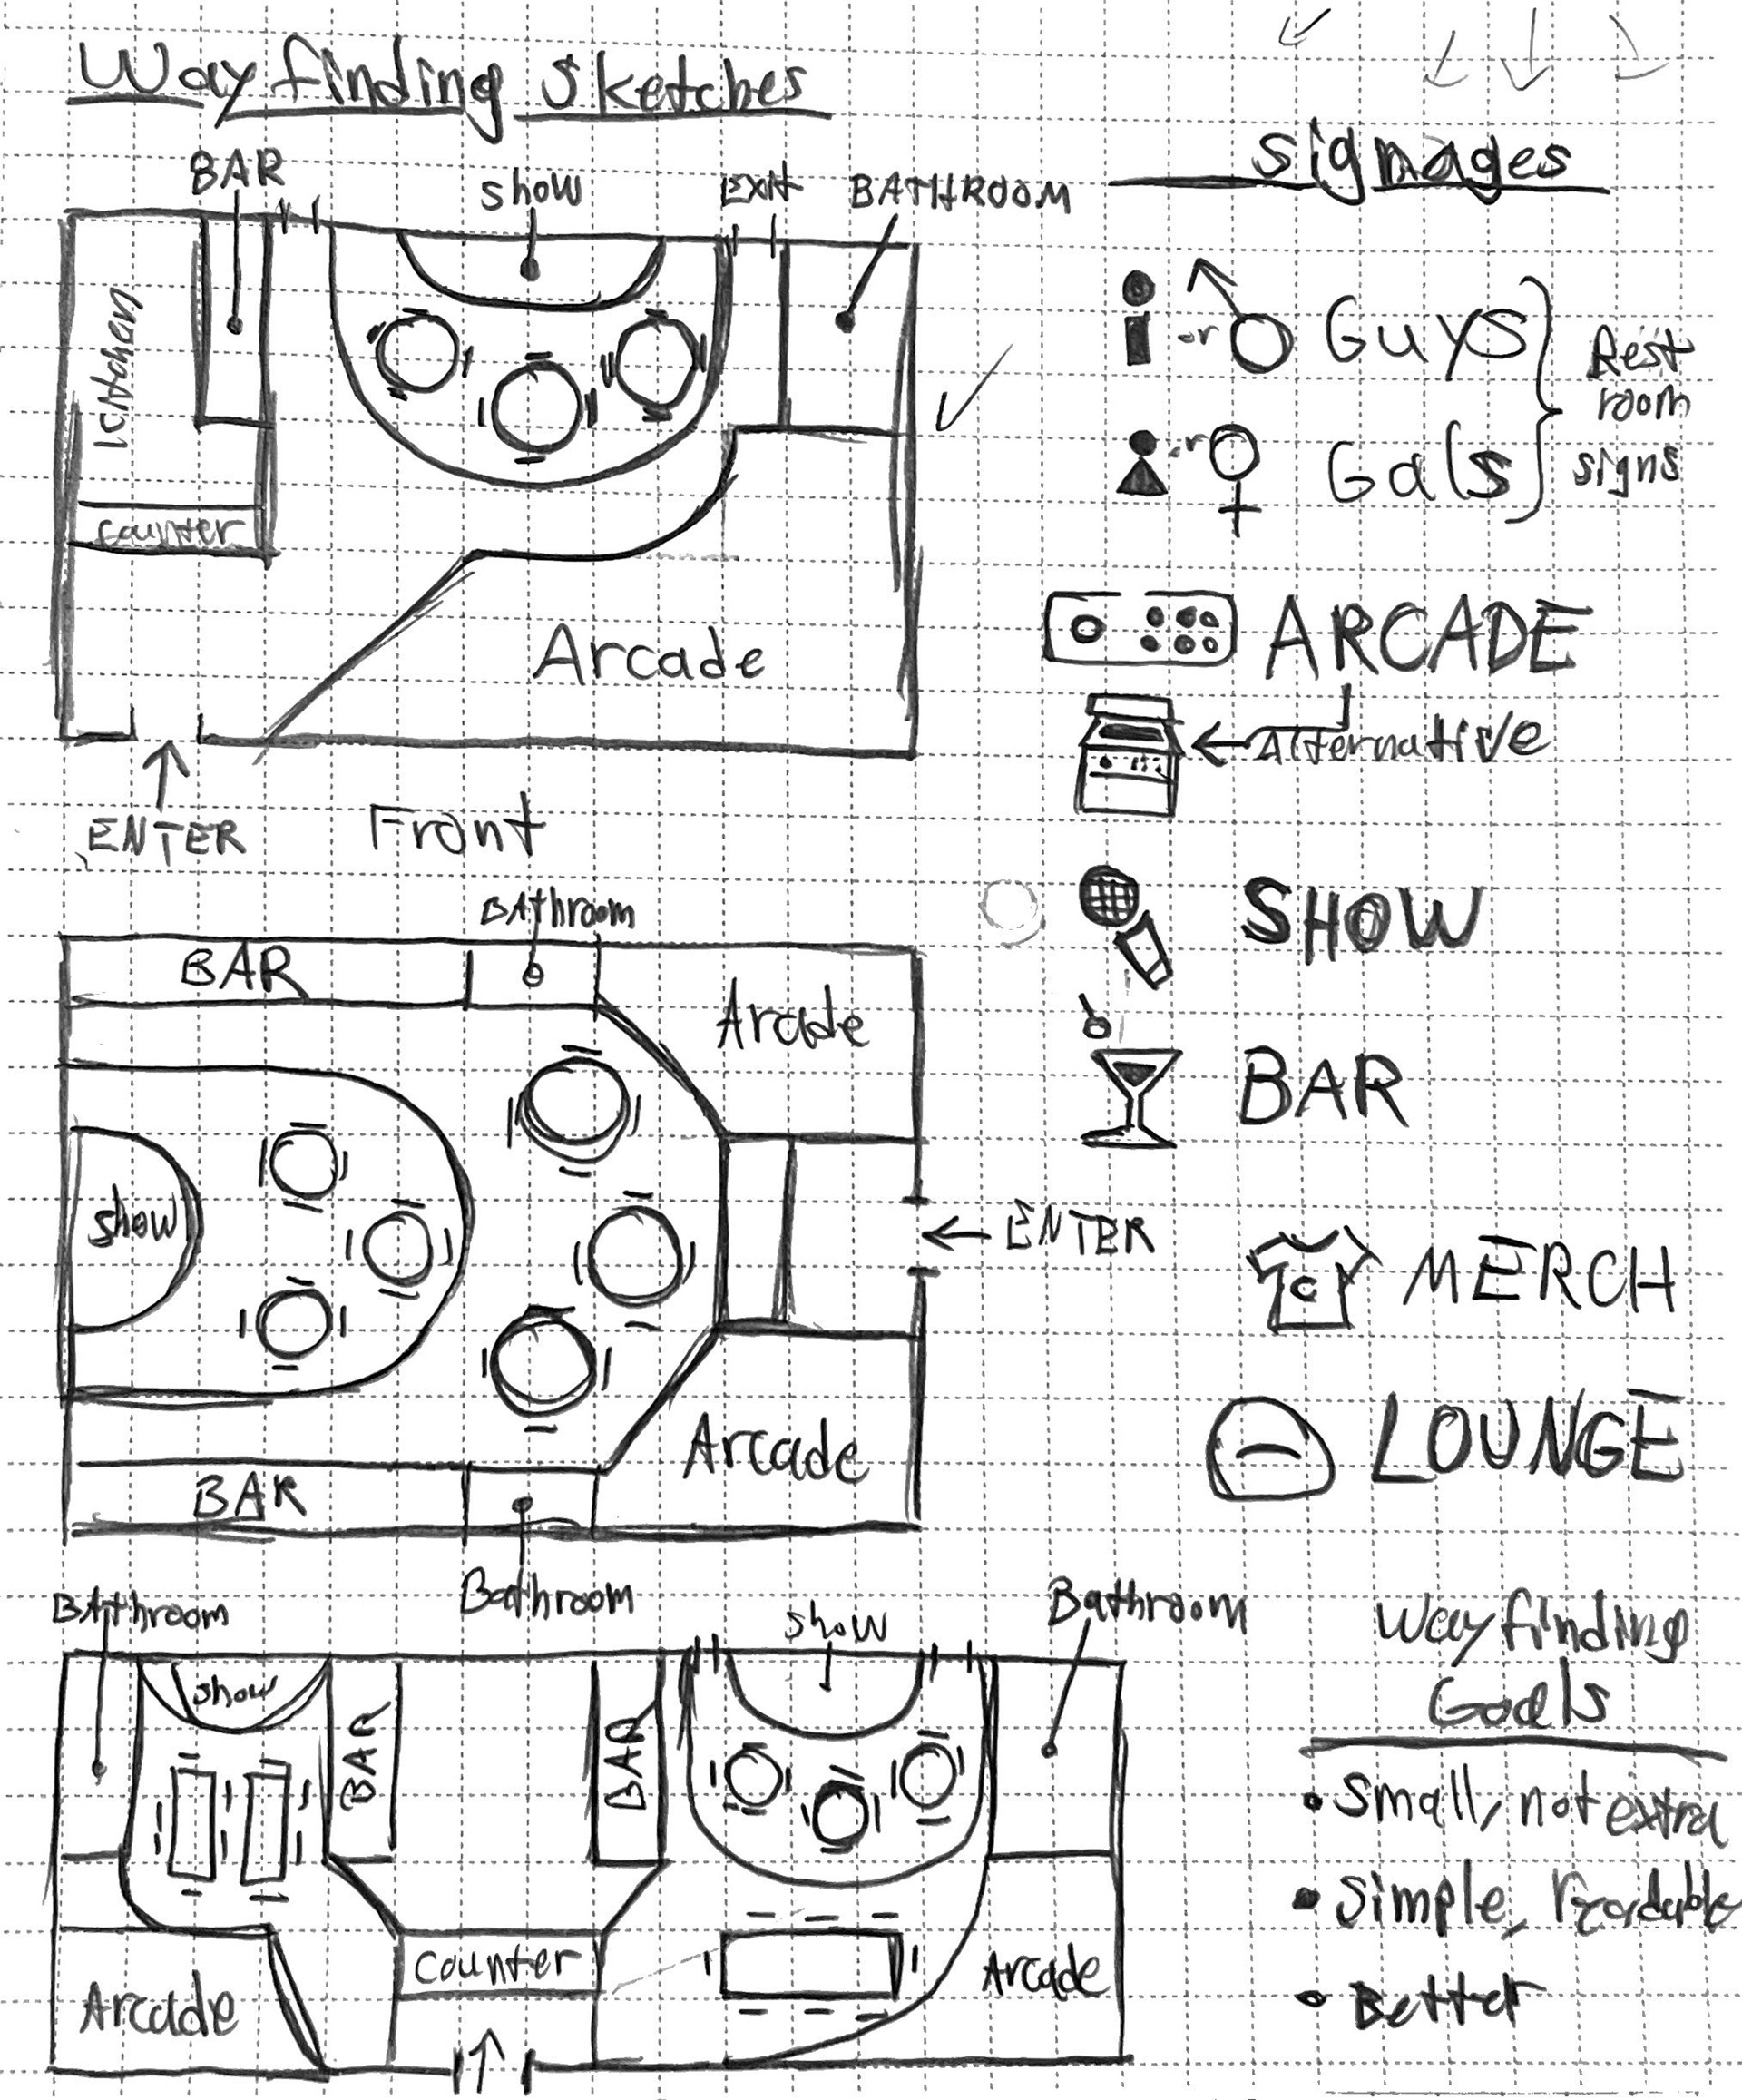 Way finding Sketches
BAR
show
EXIT
BATHROOM
Kitchen
counter
Arcade
ENTER
Front
BAthroom
BAR
Arcade
show
ENTER
Arcade
BAR
Bathroom
BAthroom
show
Bathroom
show
BAR
BAR
counter
Arcade
Arcade
signages
or Guys
or Gals
Rest
room
signs
ARCADE
Alternative
SHOW
BAR
C MERCH
LOUNGE
Way finding
Goals
• Small, not extra
• Simple, Readable
• Better